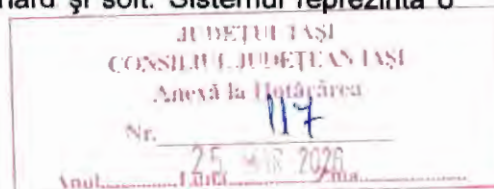 hard și soft. Sistemul reprezintă o
JUDEȚUL IAȘI
CONSILIUL JUDEȚEAN IAȘI
Anexă la Hotărârea
Nr. 117
25 MAR 2026
Anul.............Luna.............Ziua.............